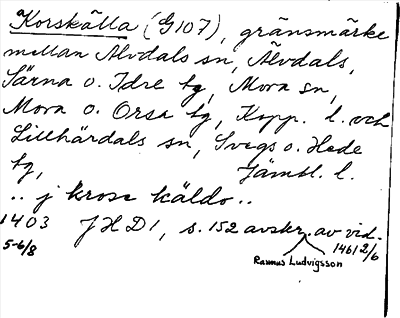 Korskälla (G107), gränsmärke
mellan Älvdals sn, Älvdals,
Särna o. Idre tg, Mora sn,
Mora o. Orsa tg, Kopp. l. och
Lillhärdals sn, Svegs o. Hede
tg, Jämtl. l.
.. j krosa käldo ..
1403 JHD1, s. 152 avskr. av vid.
5-6/8 1461 2/6
Rasmus Ludvigsson